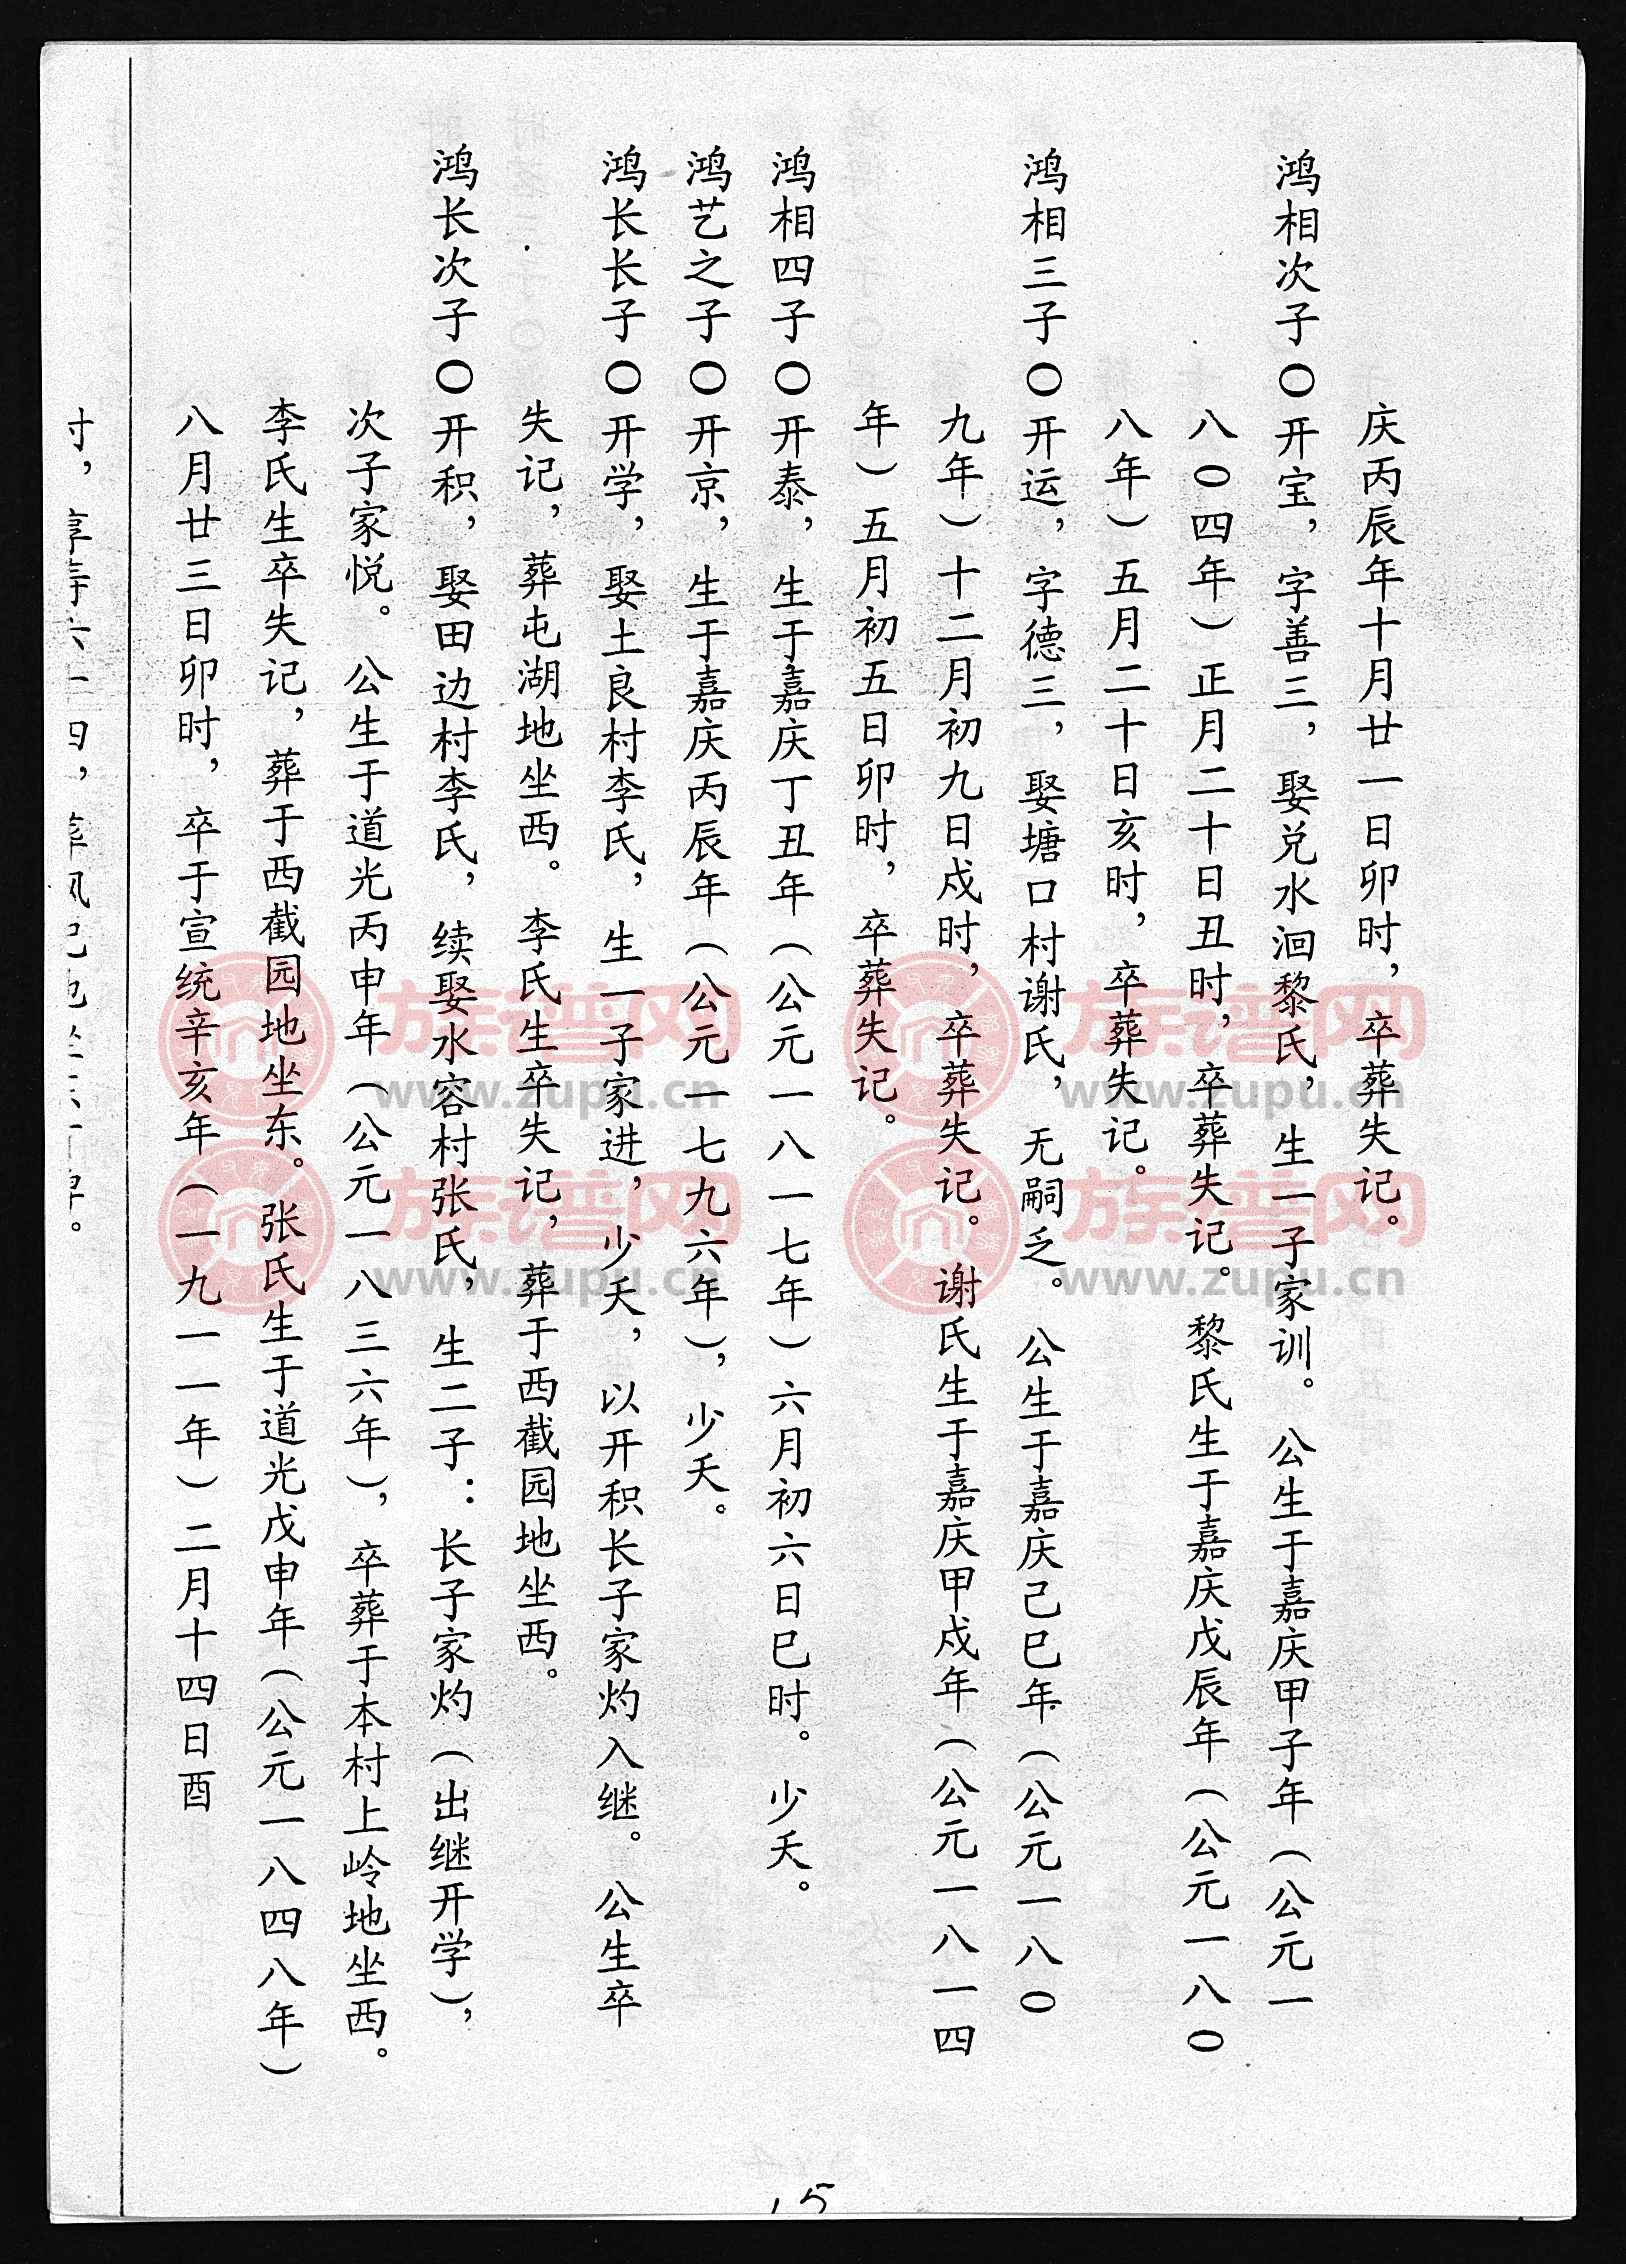 庆丙辰年十月廿一日卯时，卒葬失记。
鸿相次子〇开宝，字善三，娶兑水洄黎氏，生一子家训。公生于嘉庆甲子年（公元一
八〇四年）正月二十日丑时，卒葬失记。黎氏生于嘉庆戊辰年（公元一八〇
八年）五月二十日亥时，卒葬失记。
鸿相三子〇开运，字德三，娶塘口村谢氏，无嗣乏。公生于嘉庆己巳年（公元一八〇
九年）十二月初九日戍时，卒葬失记。谢氏生于嘉庆甲戍年（公元一八一四
年）五月初五日卯时，卒葬失记。
鸿相四子〇开泰，生于嘉庆丁丑年（公元一八一七年）六月初六日巳时。少夭。
鸿艺之子〇开京，生于嘉庆丙辰年（公元一七九六年），少夭。
鸿长长子〇开学，娶土良村李氏，生一子家进，少夭，以开积长子家灼入继。公生卒
失记，葬屯湖地坐西。李氏生卒失记，葬于西截园地坐西。
鸿长次子〇开积，娶田边村李氏，续娶水容村张氏，生二子：长子家灼（出继开学），
次子家悦。公生于道光丙申年（公元一八三六年），卒葬于本村上岭地坐西。
李氏生卒失记，葬于西截园地坐东。张氏生于道光戊申年（公元一八四八年）
八月廿三日卯时，卒于宣统辛亥年（一九一一年）二月十四日酉
15
族谱网
www.zupu.cn
族谱网
www.zupu.cn
族谱网
www.zupu.cn
族谱网
www.zupu.cn